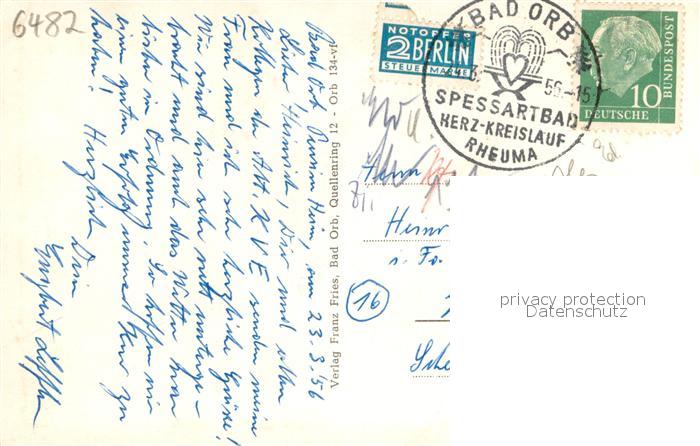 6482
Bad Orb Pension Heim, am 23.3.56
Lieber Heinrich, Dir und allen
Kollegen der Abt. XVE senden meine
Frau und ich sehr herzliche Grüße!
Wir sind hier sehr nett unterge-
bracht und auch das Wetter war
bisher in Ordnung. So hoffen wir
einen guten Erfolg unserer Kur zu
haben! Herzlich Dein
Engelbert
Verlag Franz Fries, Bad Orb, Quellenring 12 - Orb 134-vf
NOTOPFER
2 BERLIN
STEUERMARKE
BAD ORB
56-15
SPESSARTBAD
HERZ-KREISLAUF
RHEUMA
10
DEUTSCHE
BUNDESPOST
Herrn
Heinr
16
privacy protection
Datenschutz